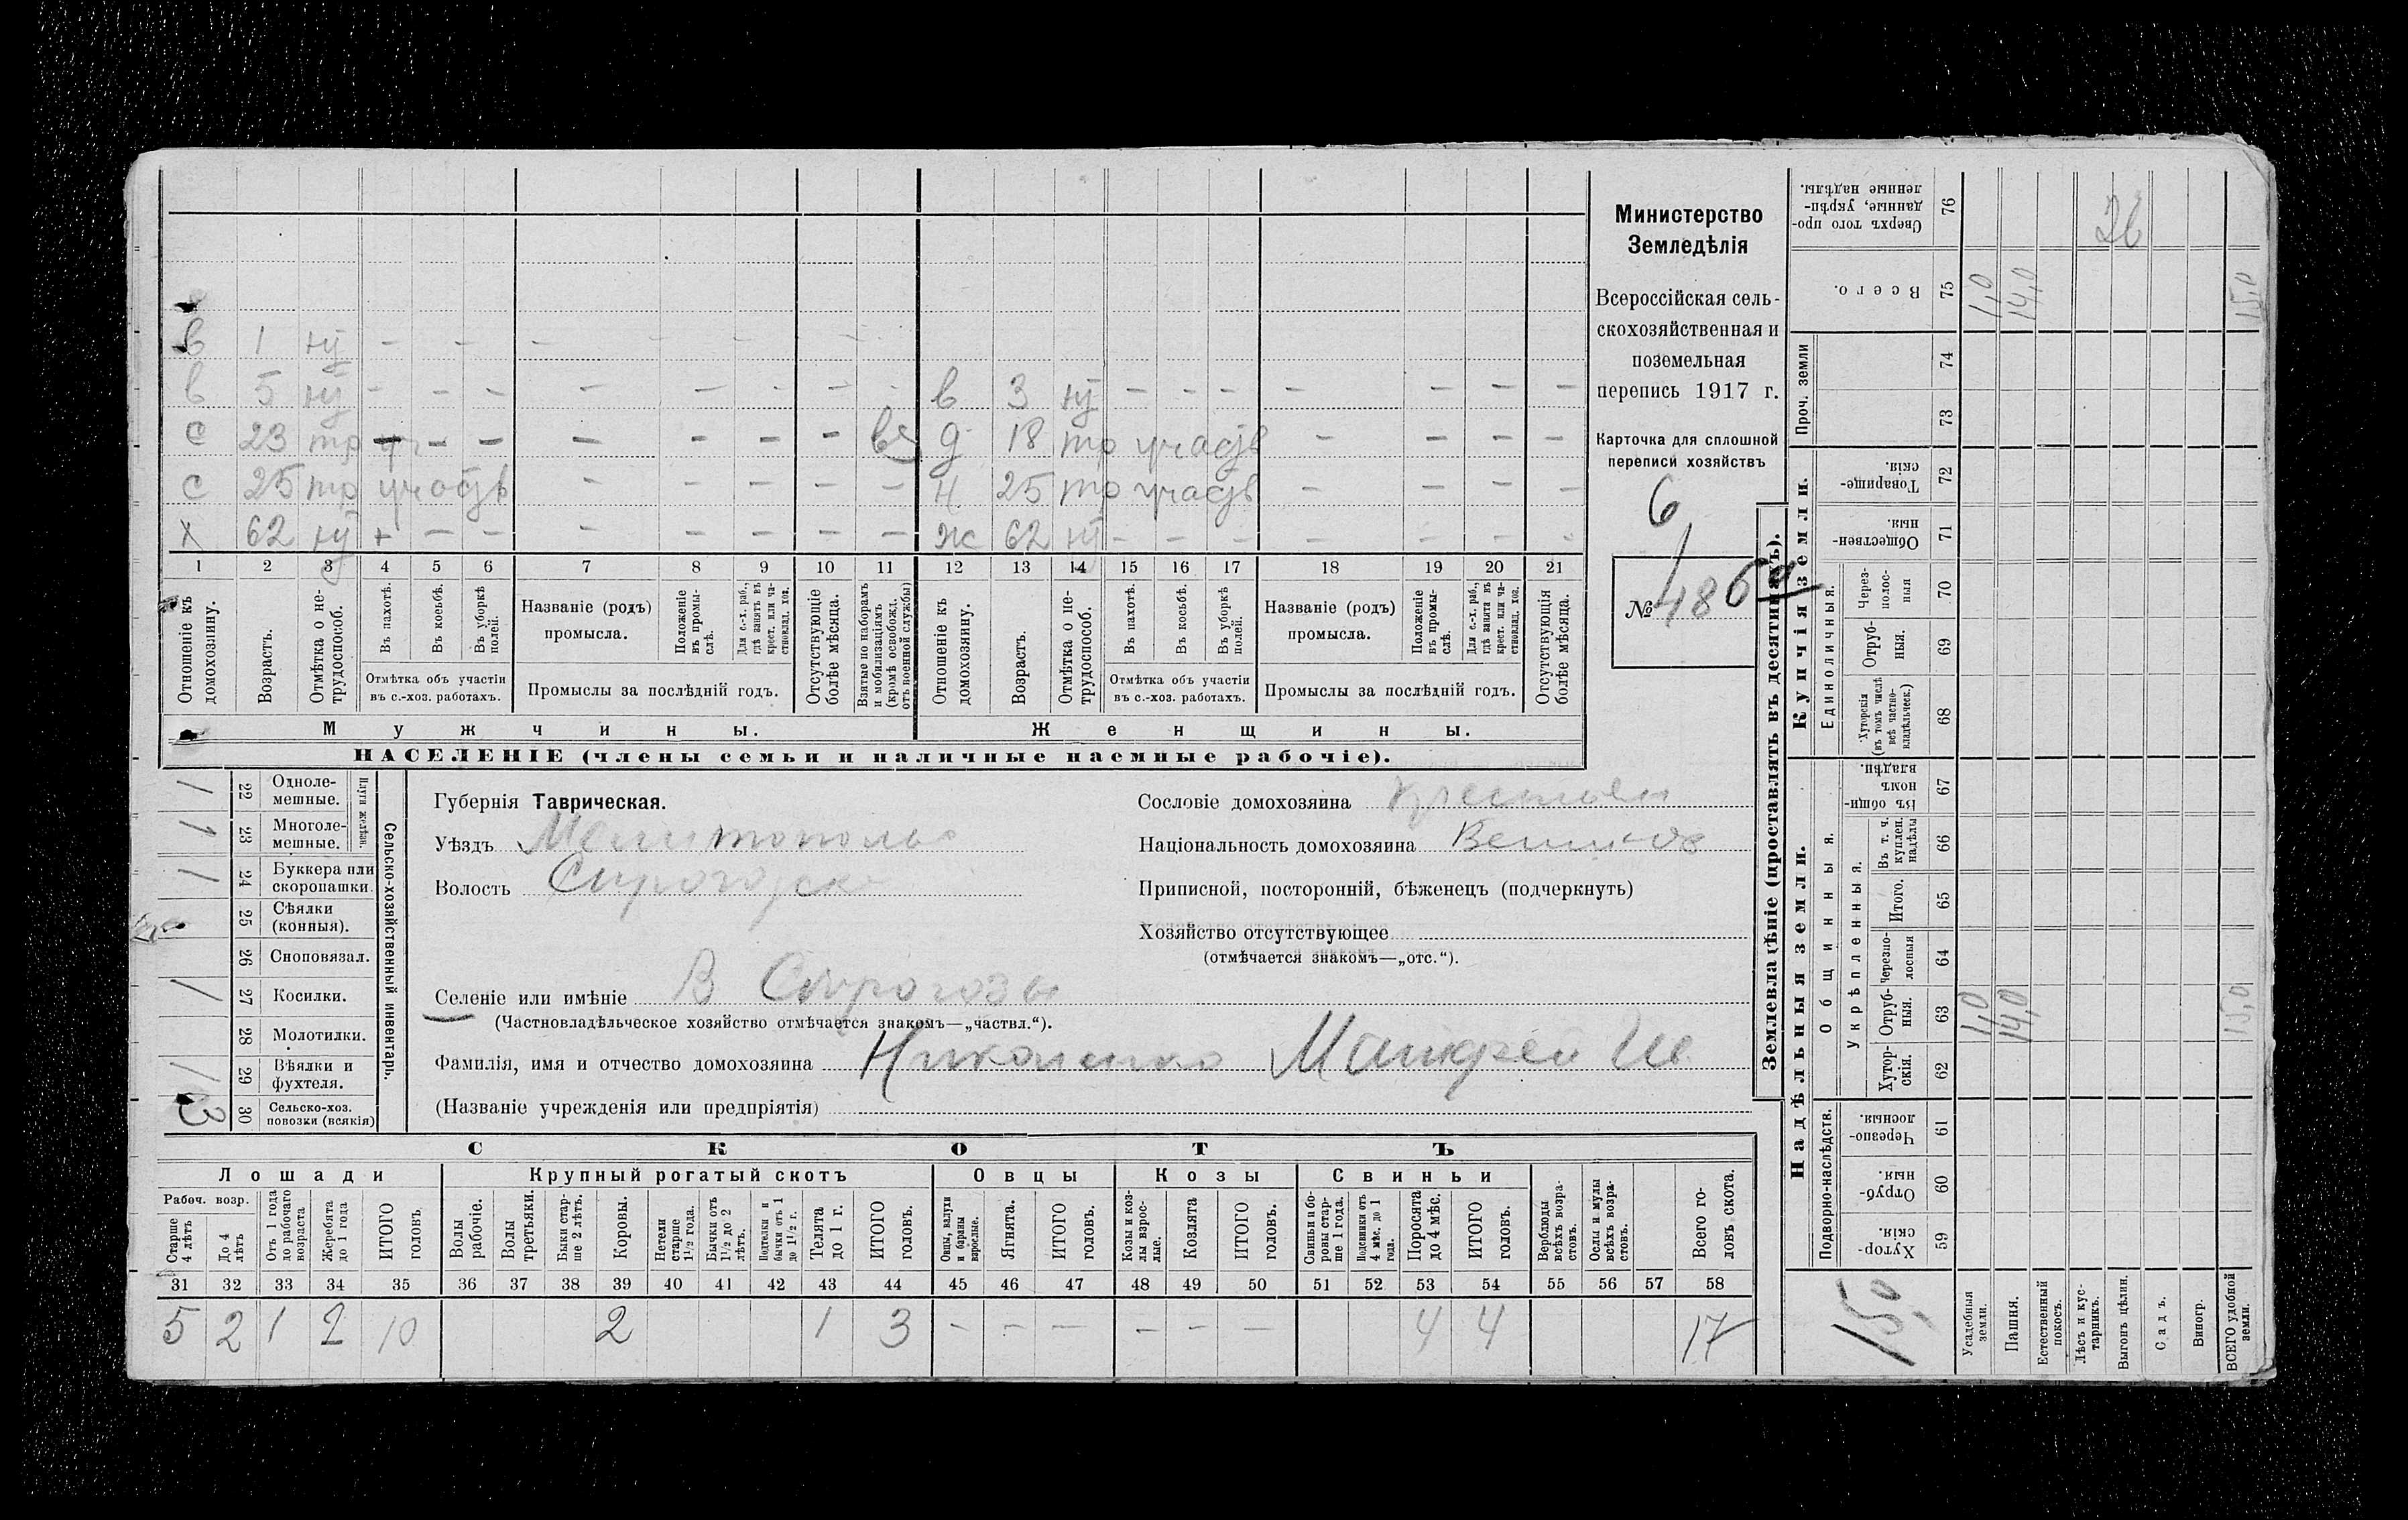 в 1 ну - - - - - - - -
в 5 ну - - - - - - - - в 3 ну - - - - - - -
с 23 тр - - - - - - - вс д 18 тр участв - - - -
с 25 тр участв - - - - - н 25 тр участв - - - -
х 62 ну + - - - - - - - ж 62 ну - - - - - - -
1 2 3 4 5 6 7 8 9 10 11 12 13 14 15 16 17 18 19 20 21
Отношеніе къ домохозяину.
Возрастъ.
Отмѣтка о не-трудоспособ.
Въ пахотѣ.
Въ косьбѣ.
Въ уборкѣ полей.
Отмѣтка объ участіи
въ с.-хоз. работахъ.
Названіе (родъ)
промысла.
Положеніе въ промы-слѣ.
Для с.-х. раб., гдѣ занятъ въ крест. или ча-стновлад. хоз.
Промыслы за послѣдній годъ.
Отсутствующіе болѣе мѣсяца.
Взятые по наборамъ и мобилизаціямъ (кромѣ освобожд. отъ военной службы)
Отношеніе къ домохозяину.
Возрастъ.
Отмѣтка о не-трудоспособ.
Въ пахотѣ.
Въ косьбѣ.
Въ уборкѣ полей.
Отмѣтка объ участіи
въ с.-хоз. работахъ.
Названіе (родъ)
промысла.
Положеніе въ промы-слѣ.
Для с.-х. раб., гдѣ заняти въ крест. или ча-стновлад. хоз.
Промыслы за послѣдній годъ.
Отсутствующія болѣе мѣсяца.
Мужчины. Женщины.
НАСЕЛЕНІЕ (члены семьи и наличные наемные рабочіе).
Министерство
Земледѣлія
Всероссійская сель-
скохозяйственная и
поземельная
перепись 1917 г.
Карточка для сплошной
переписи хозяйствъ
6
№ 486
Плуги желѣзн.
1 22 Одноле-мешные.
1 23 Многоле-мешные.
1 24 Буккера или скоропашки.
25 Сѣялки (конныя).
26 Сноповязал.
1 27 Косилки.
28 Молотилки.
1 29 Вѣялки и фухтеля.
3 30 Сельско-хоз. повозки (всякія)
Сельско-хозяйственный инвентарь.
Губернія Таврическая.
Уѣздъ Мелитополь
Волость Сирогозск
Селеніе или имѣніе В Сирогозы
(Частновладѣльческое хозяйство отмѣчается знакомъ—„частвл.“).
Фамилія, имя и отчество домохозяина Николенко Матфей Ив
(Названіе учрежденія или предпріятія)
Сословіе домохозяина крестьян
Національность домохозяина
Приписной, посторонній, бѣженецъ (подчеркнуть)
Хозяйство отсутствующее
(отмѣчается знакомъ—„отс.“).
СКОТЪ
Лошади Крупный рогатый скотъ Овцы Козы Свиньи
Рабоч. возр.
Старше 4 лѣтъ
До 4 лѣтъ
Отъ 1 года до рабочаго возраста
Жеребята до 1 года
ИТОГО головъ.
Волы рабочіе.
Волы третьяки.
Быки стар-ше 2 лѣтъ.
Коровы.
Нетели старше 1½ года.
Бычки отъ 1½ до 2 лѣтъ.
Подтелки и бычки отъ 1 до 1½ г.
Телята до 1 г.
ИТОГО головъ.
Овцы, валухи и бараны взрослые.
Ягнята.
ИТОГО головъ.
Козы и коз-лы взрос-лые.
Козлята
ИТОГО головъ.
Свиньи и бо-ровы стар-ше 1 года.
Подсвинки отъ 4 мѣс. до 1 года.
Поросята до 4 мѣс.
ИТОГО головъ.
Верблюды всѣхъ возра-стовъ.
Ослы и мулы всѣхъ возра-стовъ.
Всего го-ловъ скота.
31 32 33 34 35 36 37 38 39 40 41 42 43 44 45 46 47 48 49 50 51 52 53 54 55 56 57 58
5 2 1 2 10 2 1 3 - - - - - - 4 4 17
Землевладѣніе (проставлять въ десятинахъ).
Купчія земли.
Надѣльныя земли.
Сверхъ того про-данные, укрѣп-ленные надѣлы. 76 26
Всего. 75 1,0 14,0 15,0
Проч. земли
74
73
Товарище-скія. 72
Обществен-ныя. 71
Единоличныя.
Через-полос-ныя 70
Отруб-ныя. 69
Хуторскія (въ томъ числѣ всѣ частно-владѣльческ.) 68
Общинныя.
Въ общи-номъ владѣн. 67
Укрѣпленныя.
Въ т. ч. куплен. надѣлы 66
Итого. 65
Черезпо-лосныя 64
Отруб-ныя. 63 1,0 14,0 15,0
Хутор-скія. 62
Подворно-наслѣдств.
Черезпо-лосныя. 61
Отруб-ныя. 60
Хутор-скія. 59
15,0
Усадебныя земли.
Пашня.
Естественный покосъ.
Лѣсъ и кус-тарникъ.
Выгонъ цѣлин.
Садъ.
Виногр.
ВСЕГО удобной земли.